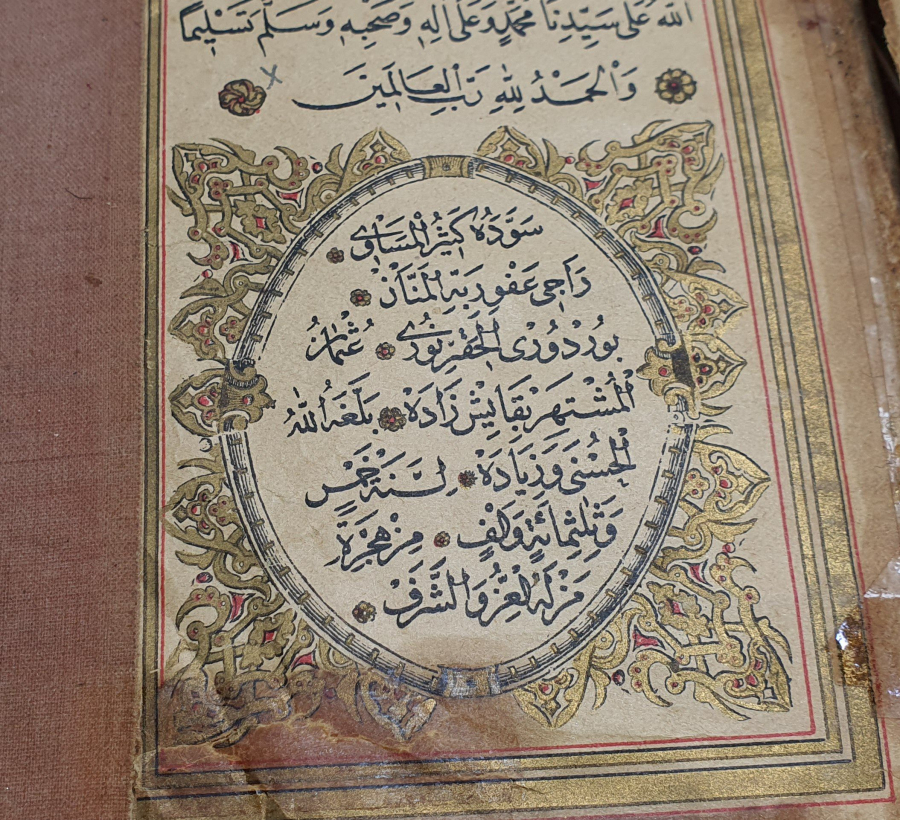 اللهُ عَلَى سَيِّدِنَا مُحَمَّدٍ وَعَلَى اٰلِهِ وَصَحْبِهِ وَسَلَّمَ تَسْلِيمًا
وَالْحَمْدُ لِلّٰهِ رَبِّ الْعَالَمِينَ
سَوَّدَهُ كَثِيرُ الْمَسَاوِى
رَاجِى عَفْوِ رَبِّهِ الْمَنَّانْ
بُورْدُورْى الْحَقِيرْ نُورْى عُثْمَانُ
الْمُشْتَهِرْ بِقَايِشْ زَادَهْ بَلَّغَهُ اللهُ
الْحُسْنٰى وَزِيَادَهْ لِسَنَةِ خَمْسٍ
وَثَلٰثِمِائَةٍ وَاَلْفٍ مِنْ هِجْرَةِ
مَنْ لَهُ الْعِزُّ وَالشَّرَفْ